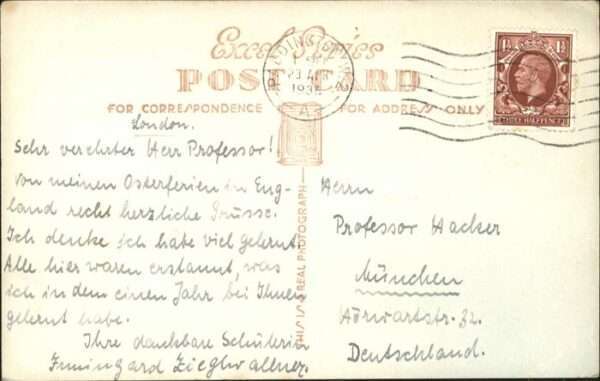 Excel Series
POST CARD
FOR CORRESPONDENCE
FOR ADDRESS ONLY
PADDINGTON W.2
1935
A
1½ 1½
THREE HALFPENCE
THIS IS A REAL PHOTOGRAPH
London.
Sehr verehrter Herr Professor!
Von meinen Osterferien in Eng-
land recht herzliche Grüsse.
Ich denke ich habe viel gelernt.
Alle hier waren erstaunt, was
ich in dem einen Jahr bei Ihnen
gelernt habe.
Ihre dankbare Schülerin
Irmingard Zieglwallner.
Herrn
Professor Hacker
München
Hörwartstr. 32.
Deutschland.